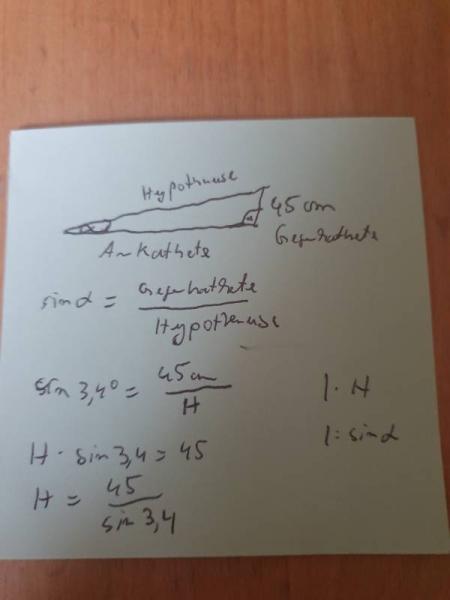 Hypothenuse
α
45 cm
Gegenkathete
Ankathete
sin α = Gegenkathete / Hypothenuse
sin 3,4° = 45 cm / H | · H
H · sin 3,4 = 45 | : sin α
H = 45 / sin 3,4